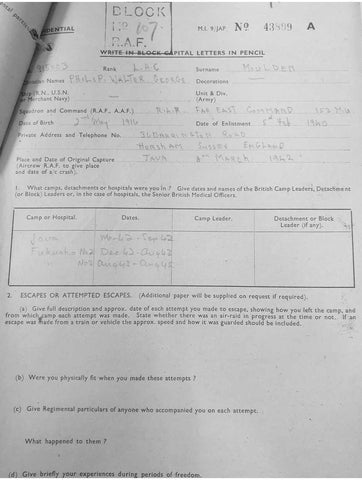 BLOCK
No 107.
R.A.F.
DENTIAL
M.I. 9/JAP No 43899 A
WRITE IN BLOCK CAPITAL LETTERS IN PENCIL
Rank L.A.C Surname MOULDEN
Christian Names PHILIP. WALTER. GEORGE Decorations
Ship (R.N., U.S.N. or Merchant Navy) Unit & Div. (Army)
Squadron and Command (R.A.F., A.A.F.) FAR EAST COMMAND
Date of Birth 2nd May 1916 Date of Enlistment 5th Feb 1940
Private Address and Telephone No. ROAD
HORSHAM SUSSEX ENGLAND
Place and Date of Original Capture JAVA 8th MARCH 1942
(Aircrew R.A.F. to give place
and date of a/c crash).
1. What camps, detachments or hospitals were you in ? Give dates and names of the British Camp Leaders, Detachment
(or Block) Leaders or, in case of hospitals, the Senior British Medical Officers.
Camp or Hospital. Dates. Camp Leader. Detachment or Block Leader (if any).
Java Mar 42 - Sep 42
No2 Dec 42 - Aug 42
" No2 Aug 42 - Aug 45
2. ESCAPES OR ATTEMPTED ESCAPES. (Additional paper will be supplied on request if required).
(a) Give full description and approx. date of each attempt you made to escape, showing how you left the camp, and
from which camp each attempt was made. State whether there was an air-raid in progress at the time or not. If an
escape was made from a train or vehicle the approx. speed and how it was guarded should be included.
(b) Were you physically fit when you made these attempts ?
(c) Give Regimental particulars of anyone who accompanied you on each attempt.
What happened to them ?
(d) Give briefly your experiences during periods of freedom.